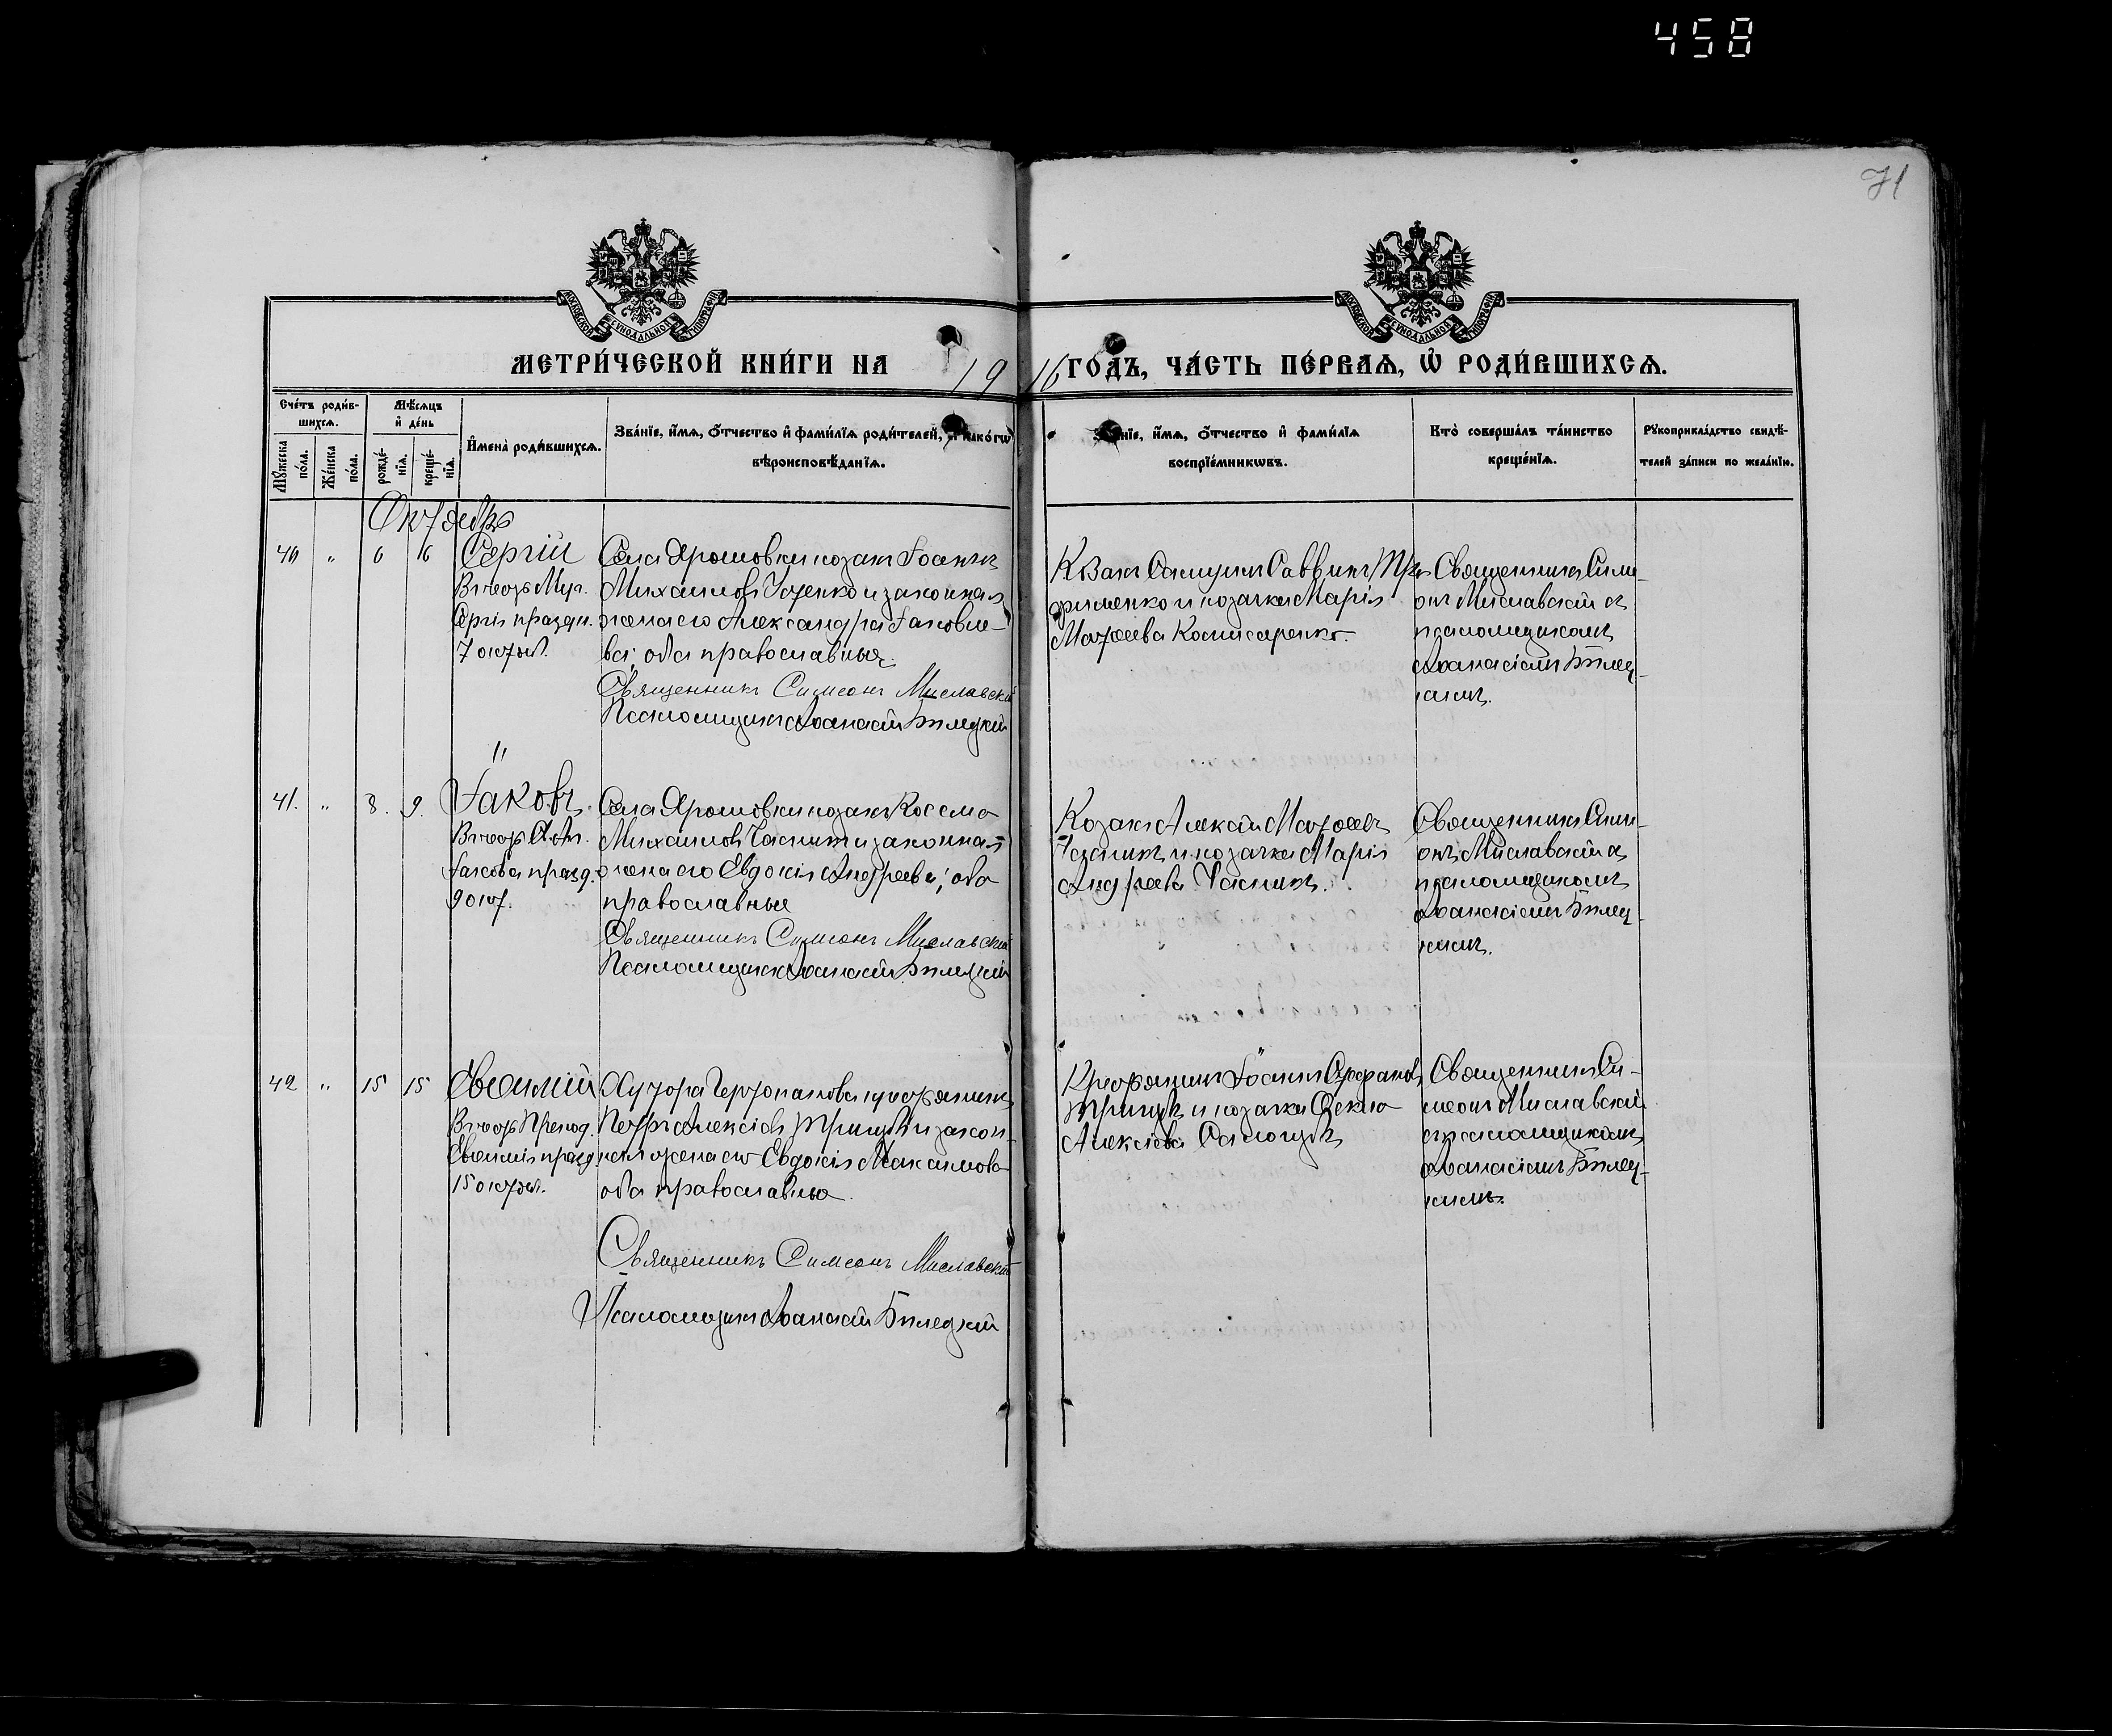 458
71
МОСКОВСКОЙ СѴНОДАЛЬНОЙ ТИПОГРАФІИ
МОСКОВСКОЙ СѴНОДАЛЬНОЙ ТИПОГРАФІИ
МЕТРИ́ЧЕСКОЙ КНИ́ГИ НА 1916 ГО́ДЪ, ЧА́СТЬ ПЕ́РВАѦ, Ѡ҆ РОДИ́ВШИХСѦ.
Сче́тъ роди́в-
шихсѧ.
Мꙋ́жеска
по́ла.
Же́нска
по́ла.
Мѣ́сѧцъ
и҆ де́нь
рожде́-
нїѧ.
креще́-
нїѧ.
И҆мена̀ роди́вшихсѧ.
Зва́нїе, и҆́мѧ, ѻ҆́тчество и҆ фами́лїѧ роди́телей, и҆ како́гѡ
вѣроисповѣ́данїѧ.
Зва́нїе, и҆́мѧ, ѻ҆́тчество и҆ фами́лїѧ
воспрїе́мникѡвъ.
Кто̀ соверша́лъ та́инство
креще́нїѧ.
Рꙋкоприкла́дство свидѣ́-
телей за́писи по жела́нїю.
Октября
40 " 6 6 Сергій
В честь Муч.
Сергія праздн.
7 октяб.
Села Ярошовки козакъ Іоаннъ
Михаиловъ Усенко и законная
жена его Александра Іаковле-
ва; оба православные.
Священникъ Симеонъ Миславскій
Псаломщикъ Аѳанасій Билецкій
Козакъ Саввинъ Тро-
фименко и козачка Марія
Матѳеева Комисаренко.
Священникъ Симе-
онъ Миславскій съ
псаломщикомъ
Аѳанасіемъ Билец-
кимъ.
"
41. " 8. 9. Іаковъ.
В честь Ап.
Іакова празд.
9 окт.
Села Ярошовки козакъ Косма
Михаиловъ Часникъ и законная
жена его Евдокія Андреева; оба
православные
Священникъ Симеонъ Миславскій
Псаломщикъ Аѳанасій Билецкій
Козакъ Алексій Матѳеевъ
и козачка Марія
Андреева Часникъ.
Священникъ Симе-
онъ Миславскій съ
псаломщикомъ
Аѳанасіемъ Билец-
кимъ.
42 " 15 15 Евѳимій
В честь Препод.
Евѳимія празд.
15 октяб.
Хутора крестьянинъ
Петръ Алексіевъ Грицукъ и закон-
ная жена его Евдокія Максимова
оба православные.
Священникъ Симеонъ Миславскій
Псаломщикъ Аѳанасій Билецкій
Крестьянинъ Іоаннъ Стефановъ
Грицукъ и козачка Ѳекла
Алексіева
Священникъ Си-
меонъ Миславскій
съ псаломщикомъ
Аѳанасіемъ Билец-
кимъ.